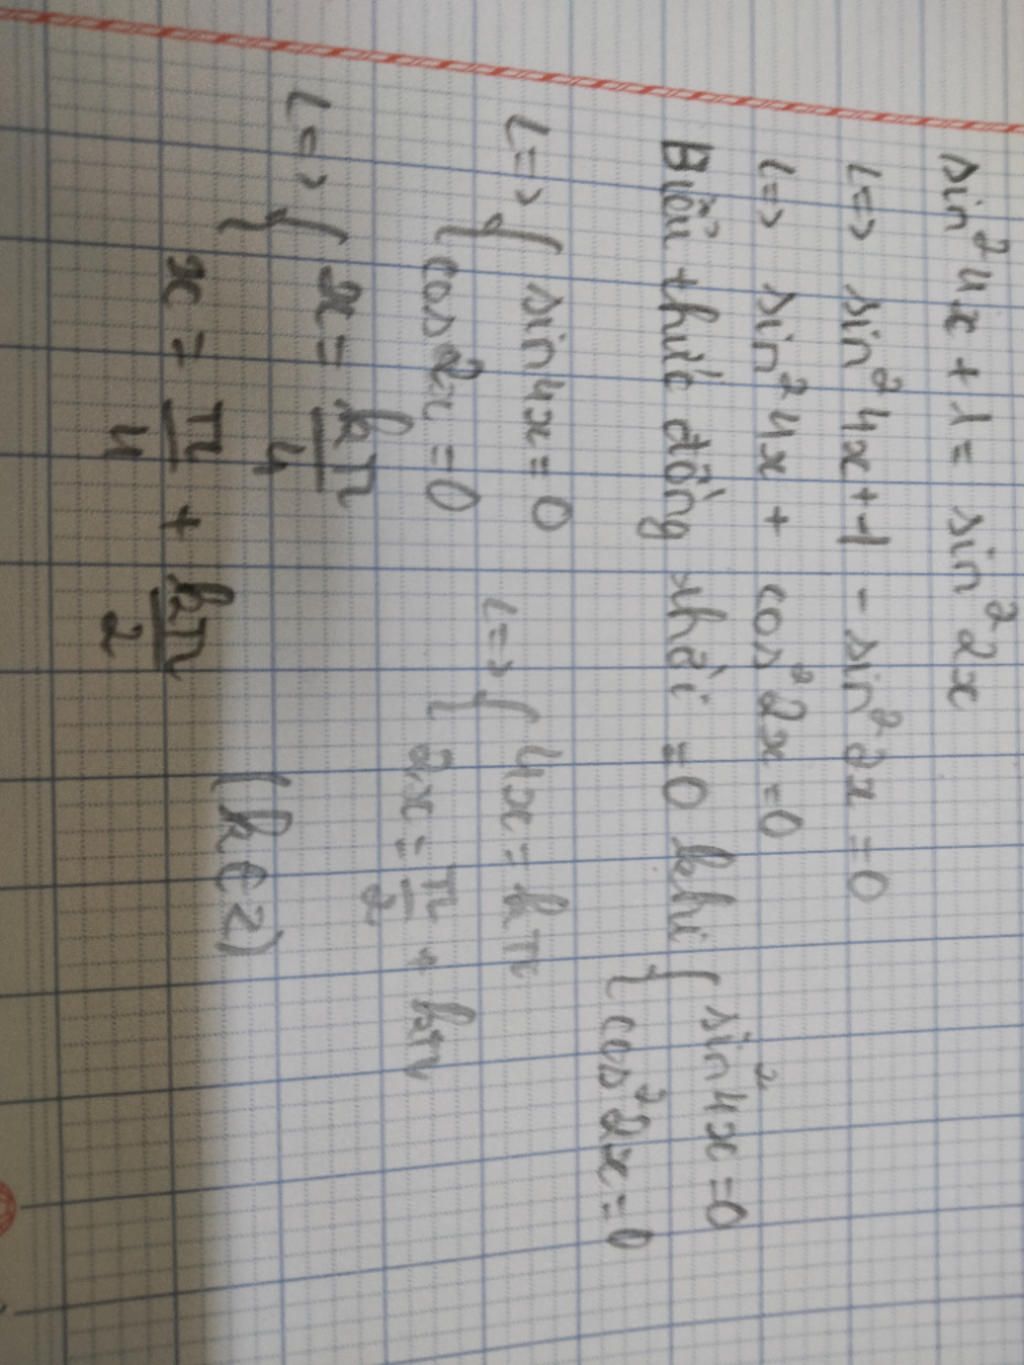 sin² 4x + 1 = sin² 2x
<=> sin² 4x + 1 - sin² 2x = 0
<=> sin² 4x + cos² 2x = 0
Biểu thức đồng thời = 0 khi { sin² 4x = 0
cos² 2x = 0
<=> { sin 4x = 0 <=> { 4x = kπ
cos 2x = 0 2x = π/2 + kπ
<=> { x = kπ/4
x = π/4 + kπ/2 (k ∈ Z)